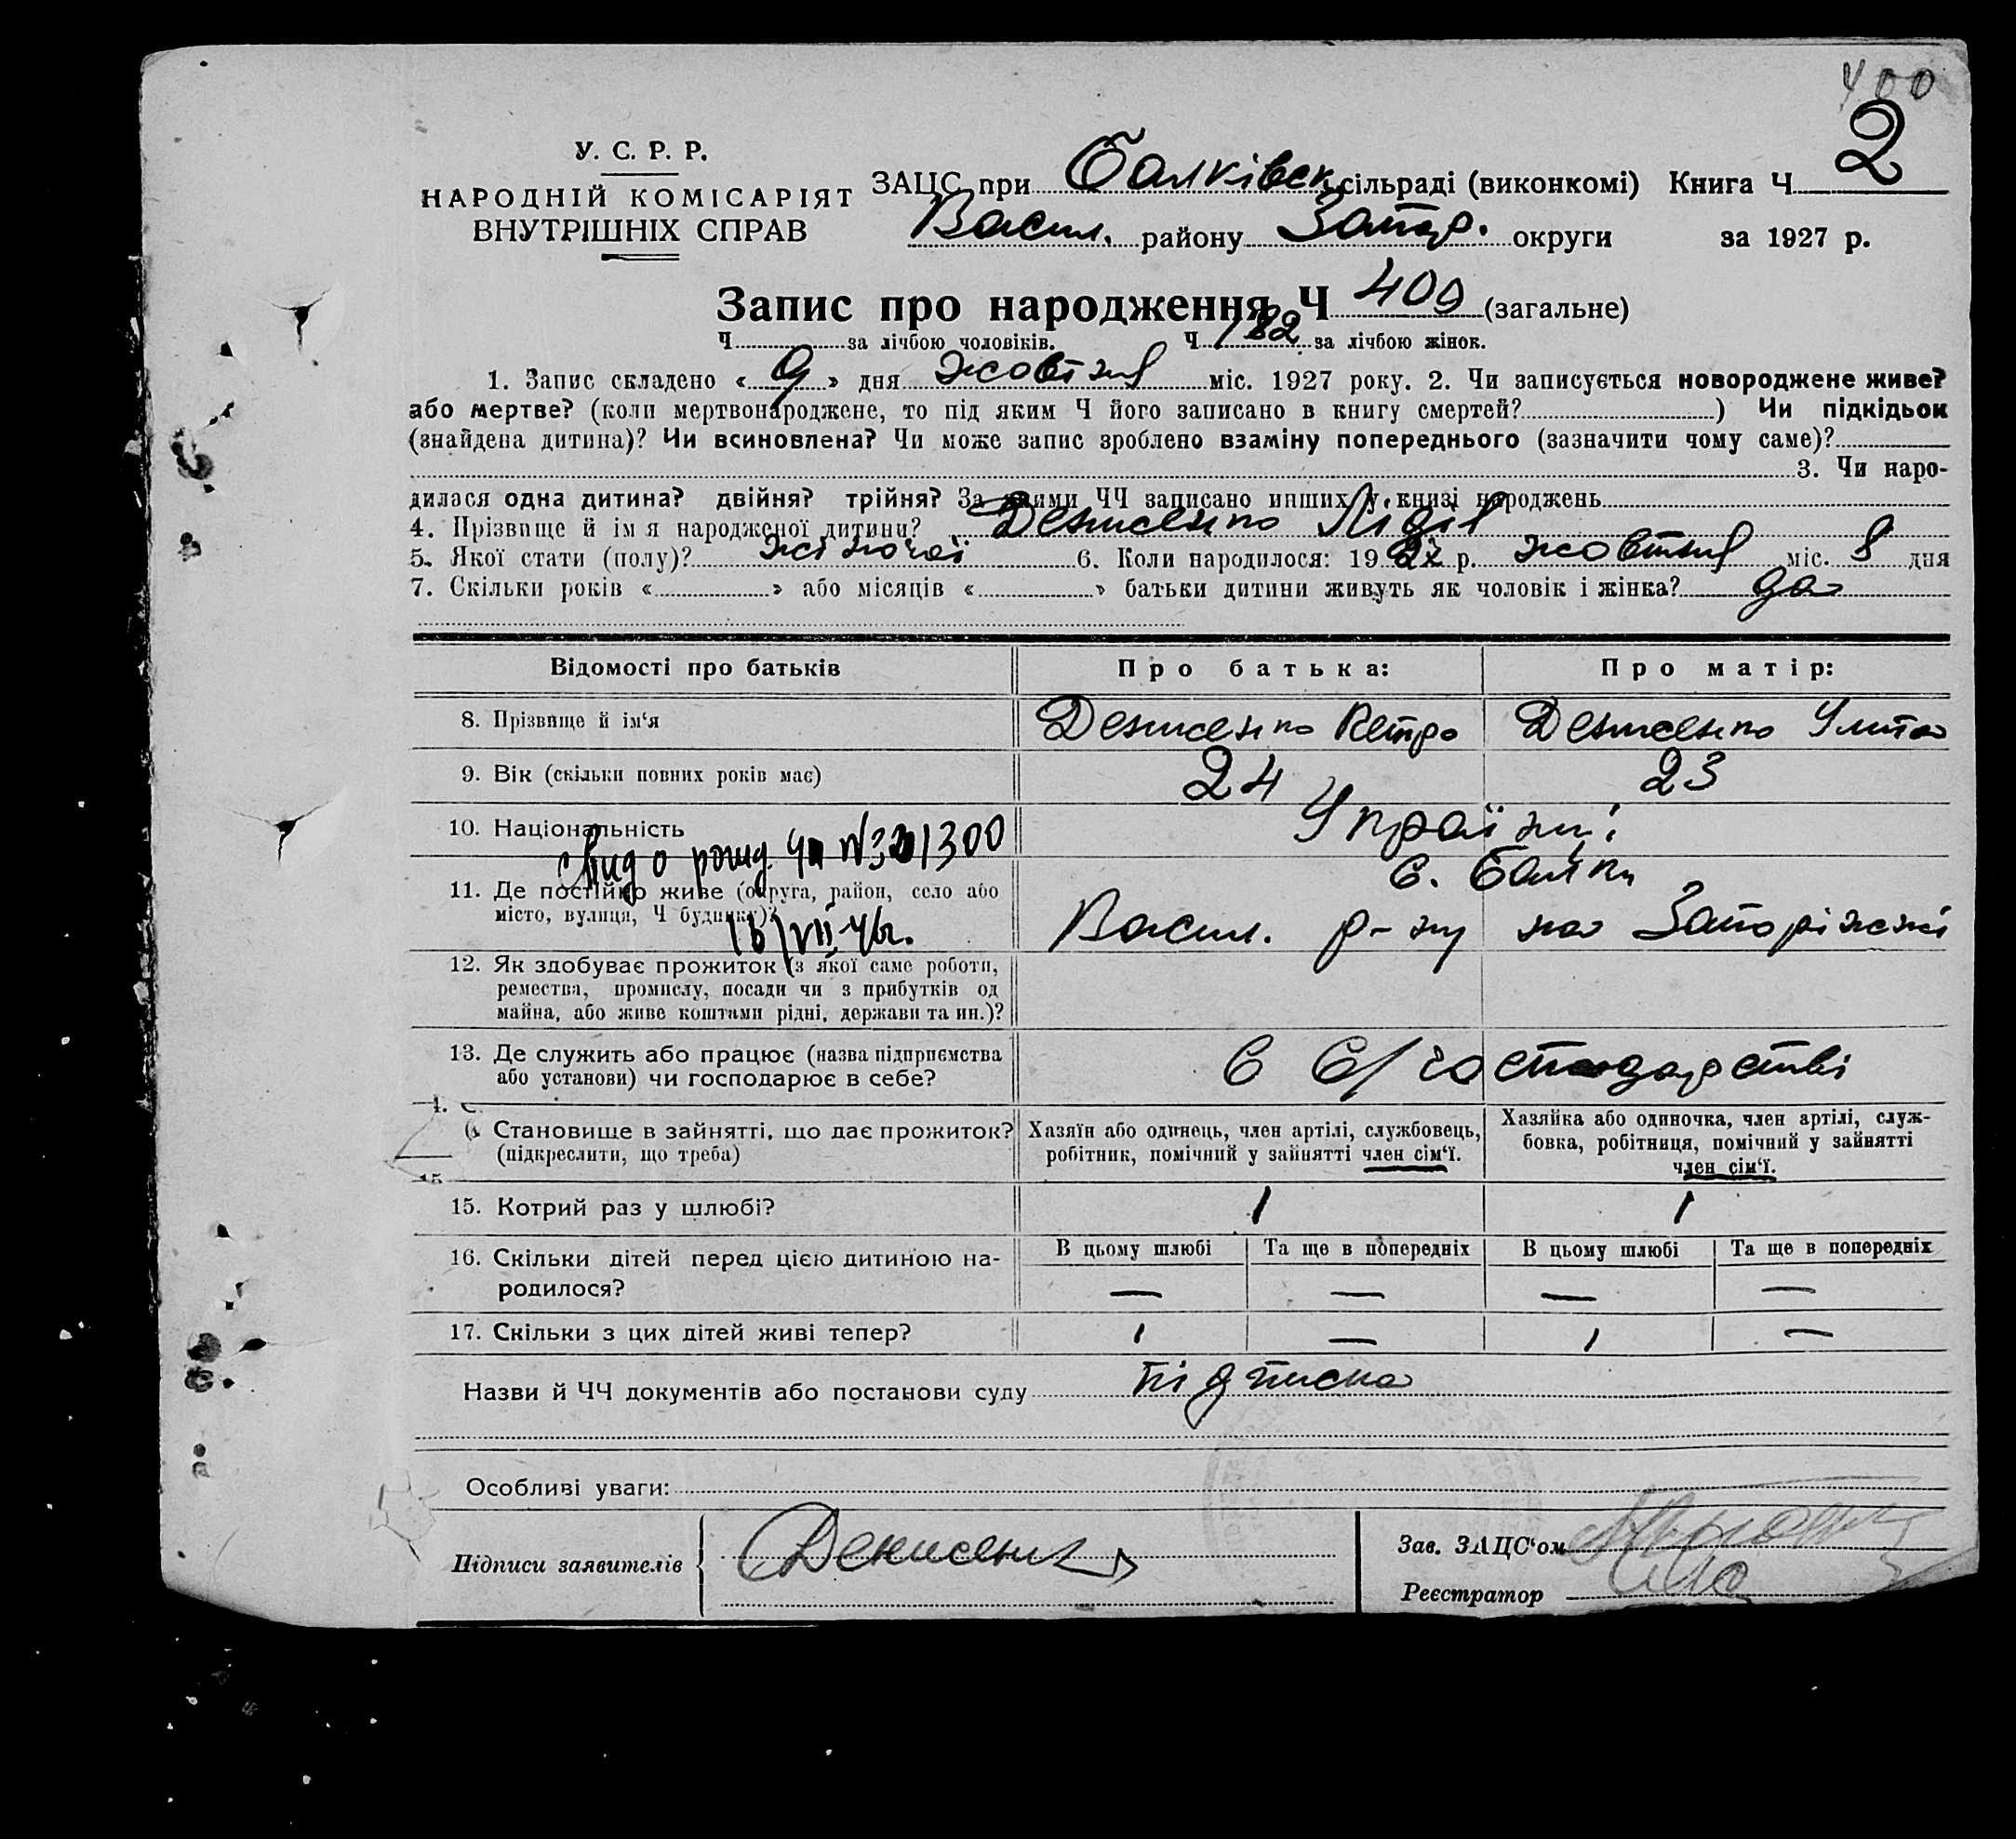 400
У. С. Р. Р.
НАРОДНІЙ КОМІСАРІЯТ
ВНУТРІШНІХ СПРАВ
ЗАЦС при Балківськ. сільраді (виконкомі) Книга Ч 2
Васил. району Запор. округи за 1927 р.
Запис про народження Ч 400 (загальне)
Ч за лічбою чоловіків. Ч 182 за лічбою жінок.
1. Запис складено « 9 » дня жовтня міс. 1927 року. 2. Чи записується новороджене живе?
або мертве? (коли мертвонароджене, то під яким Ч його записано в книгу смертей? ) Чи підкідьок
(знайдена дитина)? Чи всиновлена? Чи може запис зроблено взаміну попереднього (зазначити чому саме)?
3. Чи наро-
дилася одна дитина? двійня? трійня? За якими ЧЧ записано инших у книзі народжень
4. Прізвище й ім я народженої дитини? Денисенко Лідія
5. Якої стати (полу)? жіночої 6. Коли народилося: 1927 р. жовтня міс. 8 дня
7. Скільки років « » або місяців « » батьки дитини живуть як чоловік і жінка? да
Відомості про батьків Про батька: Про матір:
8. Прізвище й ім‘я Денисенко Петро Денисенко Улита
9. Вік (скільки повних років має) 24 23
10. Національність Українці
Свид о рожд. ЧП № 301300
11. Де постійно живе (округа, район, село або с. Балки
місто, вулиця, Ч будинку)? Васил. р-ну на Запоріжжі
12. Як здобуває прожиток (з якої саме роботи,
ремества, промислу, посади чи з прибутків од
майна, або живе коштами рідні, держави та ин.)?
13. Де служить або працює (назва підприємства в с/господарстві
або установи) чи господарює в себе?
Становище в зайнятті, що дає прожиток? Хазяїн або одинець, член артілі, службовець, Хазяйка або одиночка, член артілі, служ-
(підкреслити, що треба) робітник, помічний у зайнятті член сім‘ї. бовка, робітниця, помічний у зайнятті
член сім‘ї.
15. Котрий раз у шлюбі? 1 1
16. Скільки дітей перед цією дитиною на- В цьому шлюбі Та ще в попередніх В цьому шлюбі Та ще в попередніх
родилося? — — — —
17. Скільки з цих дітей живі тепер? 1 — 1 —
Назви й ЧЧ документів або постанови суду підписка
Особливі уваги:
Підписи заявителів Денисенк
Зав. ЗАЦС‘ом
Реєстратор